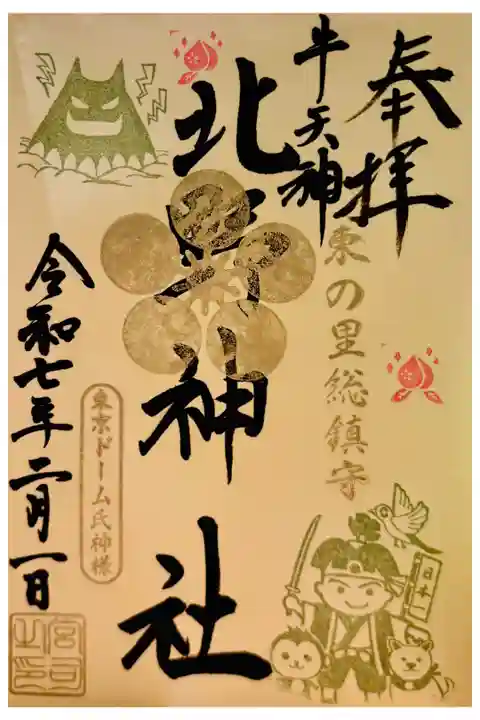 奉拝
牛天神
東の里総鎮守
北野神社
東京ドーム氏神様
令和七年二月一日
日本
宮司之印